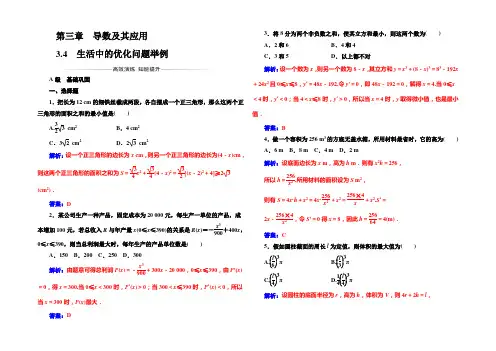 第三章 导数及其应用
3.4 生活中的优化问题举例
高效演练 知能提升
A级 基础巩固
一、选择题
1.把长为12 cm的细铁丝截成两段，各自摆成一个正三角形，那么这两个正三角形的面积之和的最小值是( )
A.3/2√3 cm² B．4 cm²
C．3√2 cm² D．2√3 cm²
解析：设一个正三角形的边长为x cm，则另一个正三角形的边长为(4－x)cm，则这两个正三角形的面积之和为S＝√3/4x²＋√3/4(4－x)²＝√3/2[(x－2)²＋4]≥2√3 (cm²)．
答案：D
2．某公司生产一种产品，固定成本为20 000元，每生产一单位的产品，成本增加100元，若总收入R与年产量x(0≤x≤390)的关系是R(x)＝－x³/900＋400x，0≤x≤390，则当总利润最大时，每年生产的产品单位数是( )
A．150 B．200 C．250 D．300
解析：由题意可得总利润P(x)＝－x³/900＋300x－20 000，0≤x≤390，由P′(x)＝0，得x＝300.当0≤x＜300时，P′(x)＞0；当300＜x≤390时，P′(x)＜0，所以当x＝300时，P(x)最大．
答案：D
3．将8分为两个非负数之和，使其立方和最小，则这两个数为( )
A．2和6 B．4和4
C．3和5 D．以上都不对
解析：设一个数为x，则另一个数为8－x，其立方和y＝x³＋(8－x)³＝8³－192x＋24x²且0≤x≤8，y′＝48x－192.令y′＝0，即48x－192＝0，解得x＝4.当0≤x＜4时，y′＜0；当4＜x≤8时，y′＞0，所以当x＝4时，y取得极小值，也是最小值．
答案：B
4．做一个容积为256 m³的方底无盖水箱，所用材料最省时，它的高为( )
A．6 m B．8 m C．4 m D．2 m
解析：设底面边长为x m，高为h m．则有x²h＝256，
所以h＝256/x².所用材料的面积设为S m²，
则有S＝4x·h＋x²＝4x·256/x²＋x²＝256×4/x＋x².S′＝
2x－256×4/x²，令S′＝0得x＝8，因此h＝256/64＝4(m)．
答案：C
5．假如圆柱截面的周长l为定值，则体积的最大值为( )
A.(l/6)³π B.(l/3)³π
C.(l/4)³π
解析：设圆柱的底面半径为r，高为h，体积为V，则4r＋2h＝l，